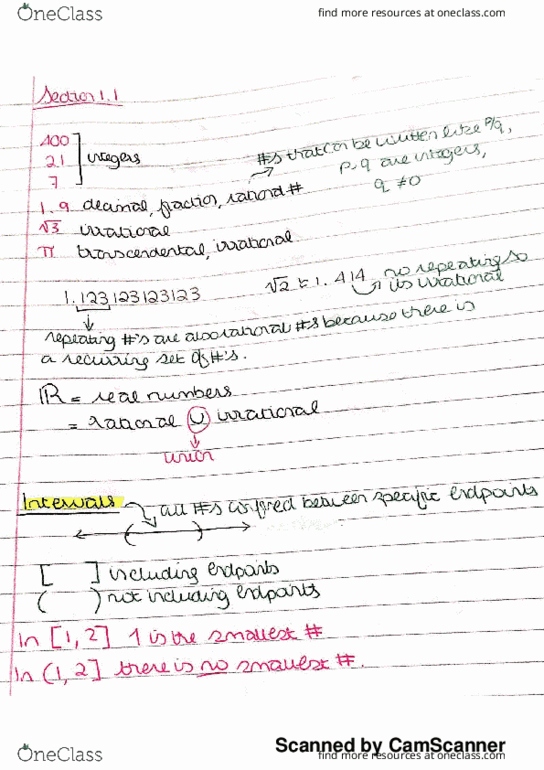 OneClass
find more resources at oneclass.com
Section 1.1
400
21 integers
7
#s that can be written like P/q,
p, q are integers,
q ≠ 0
1.9 decimal, fraction, rational #
√3 irrational
π transcendental, irrational
1.123123123123
√2 ≈ 1.414 no repeating so its irrational
repeating #'s are also rational #s because there is
a recurring set of #'s.
ℝ = real numbers
= rational ∪ irrational
union
Intervals all #s confined between specific endpoints
( )
[ ] including endpoints
( ) not including endpoints
In [1,2] 1 is the smallest #
In (1,2] there is no smallest #.
Scanned by CamScanner
OneClass
find more resources at oneclass.com